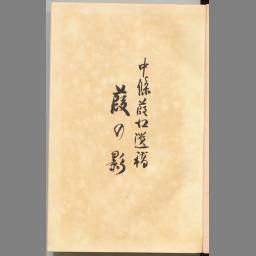 中條葭江遺稿
葭の影